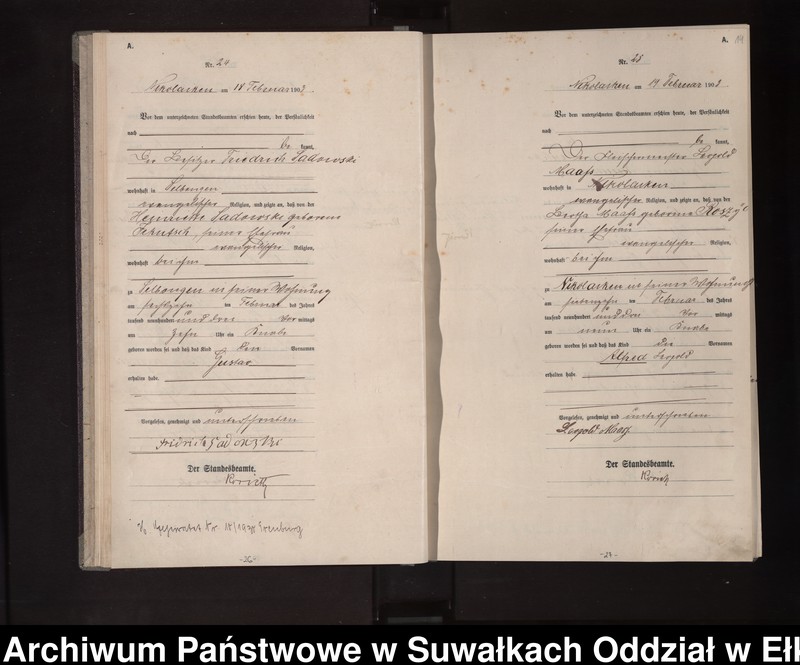 A.
Nr. 24
Nikolaiken am 18 Februar 1903
Vor dem unterzeichneten Standesbeamten erschien heute, der Persönlichkeit
nach
be kannt,
Der Besitzer Friedrich Sadowski
wohnhaft in Selbongen
evangelischer Religion, und zeigte an, daß von der
Henriette Sadowski geborenen
seiner Ehefrau
evangelischer Religion,
wohnhaft bei ihm
zu Selbongen in seiner Wohnung
am sechszehn ten Februar des Jahres
tausend neunhundert und drei Vor mittags
um zehn Uhr ein Knabe
geboren worden sei und daß das Kind den Vornamen
Gustav
erhalten habe.
Vorgelesen, genehmigt und unterschrieben
Der Standesbeamte.
-26-
A.
Nr. 25
Nikolaiken am 19 Februar 1903
Vor dem unterzeichneten Standesbeamten erschien heute, der Persönlichkeit
nach
be kannt,
Der Fleischermeister Leopold
Maaß
wohnhaft in Nikolaiken
evangelischer Religion, und zeigte an, daß von der
Bertha Maaß geborenen
seiner Ehefrau
evangelischer Religion,
wohnhaft bei ihm
zu Nikolaiken in seiner Wohnung
am siebzehn ten Februar des Jahres
tausend neunhundert und drei Vor mittags
um neun Uhr ein Knabe
geboren worden sei und daß das Kind die Vornamen
Alfred Leopold
erhalten habe.
Vorgelesen, genehmigt und unterschrieben
Leopold Maaß
Der Standesbeamte.
-27-
Archiwum Państwowe w Suwałkach Oddział w Eł